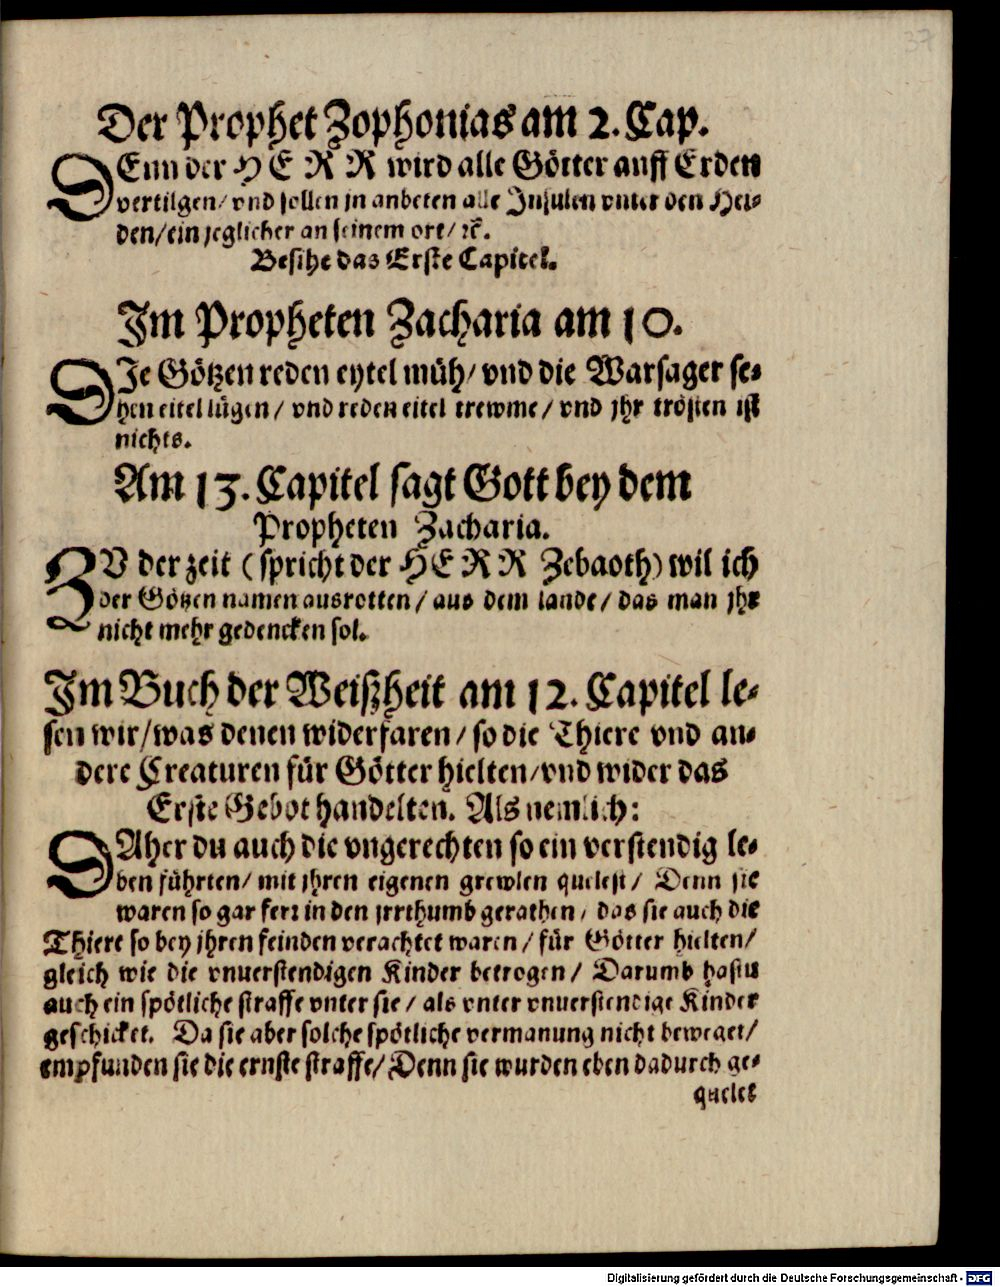 37
Der Prophet Zophonias am 2. Cap.
DEnn der HERR wird alle Götter auff Erden
vertilgen/ vnd sollen jn anbeten alle Jnsulen vnter den Hei-
den/ ein jeglicher an seinem ort/ ꝛc.
Besihe das Erste Capitel.
Im Propheten Zacharia am 10.
DJe Götzen reden eytel müh/ vnd die Warsager se-
hen eitel lügen/ vnd reden eitel trewme/ vnd jhr trösten ist
nichts.
Am 13. Capitel sagt Gott bey dem
Propheten Zacharia.
ZV der zeit (spricht der HERR Zebaoth) wil ich
der Götzen namen ausrotten/ aus dem lande/ das man jhr
nicht mehr gedencken sol.
Im Buch der Weißheit am 12. Capitel le-
sen wir/ was denen widerfaren/ so die Thiere vnd an-
dere Creaturen für Götter hielten/ vnd wider das
Erste Gebot handelten. Als nemlich:
DAher du auch die vngerechten so ein verstendig le-
ben führten/ mit jhren eigenen grewlen quelest/ Denn sie
waren so gar ferz in den jrrthumb gerathen/ das sie auch die
Thiere so bey jhren feinden verachtet waren/ für Götter hielten/
gleich wie die vnuerstendigen Kinder betrogen/ Darumb hastu
auch ein spötliche straffe vnter sie/ als vnter vnuerstendige Kinder
geschicket. Da sie aber solche spötliche vermanung nicht beweget/
empfunden sie die ernste straffe/ Denn sie wurden eben dadurch ge-
quelet
Digitalisierung gefördert durch die Deutsche Forschungsgemeinschaft - DFG